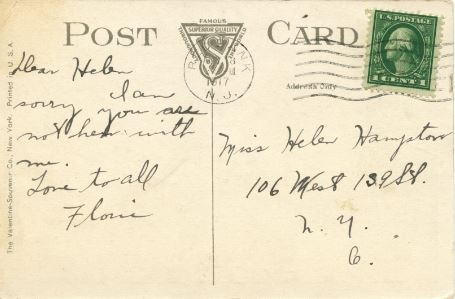 POST CARD
FAMOUS
SUPERIOR QUALITY
THROUGHOUT THE WORLD
VS
Dear Helen
I am
sorry you are
not hear with
me.
Love to all
Florie
1917
N.J.
U.S.POSTAGE
1 CENT 1
Address Only
Miss Helen Hampton
106 West 139 St.
N. Y.
C.
The Valentine-Souvenir Co., New York. Printed in U.S.A.